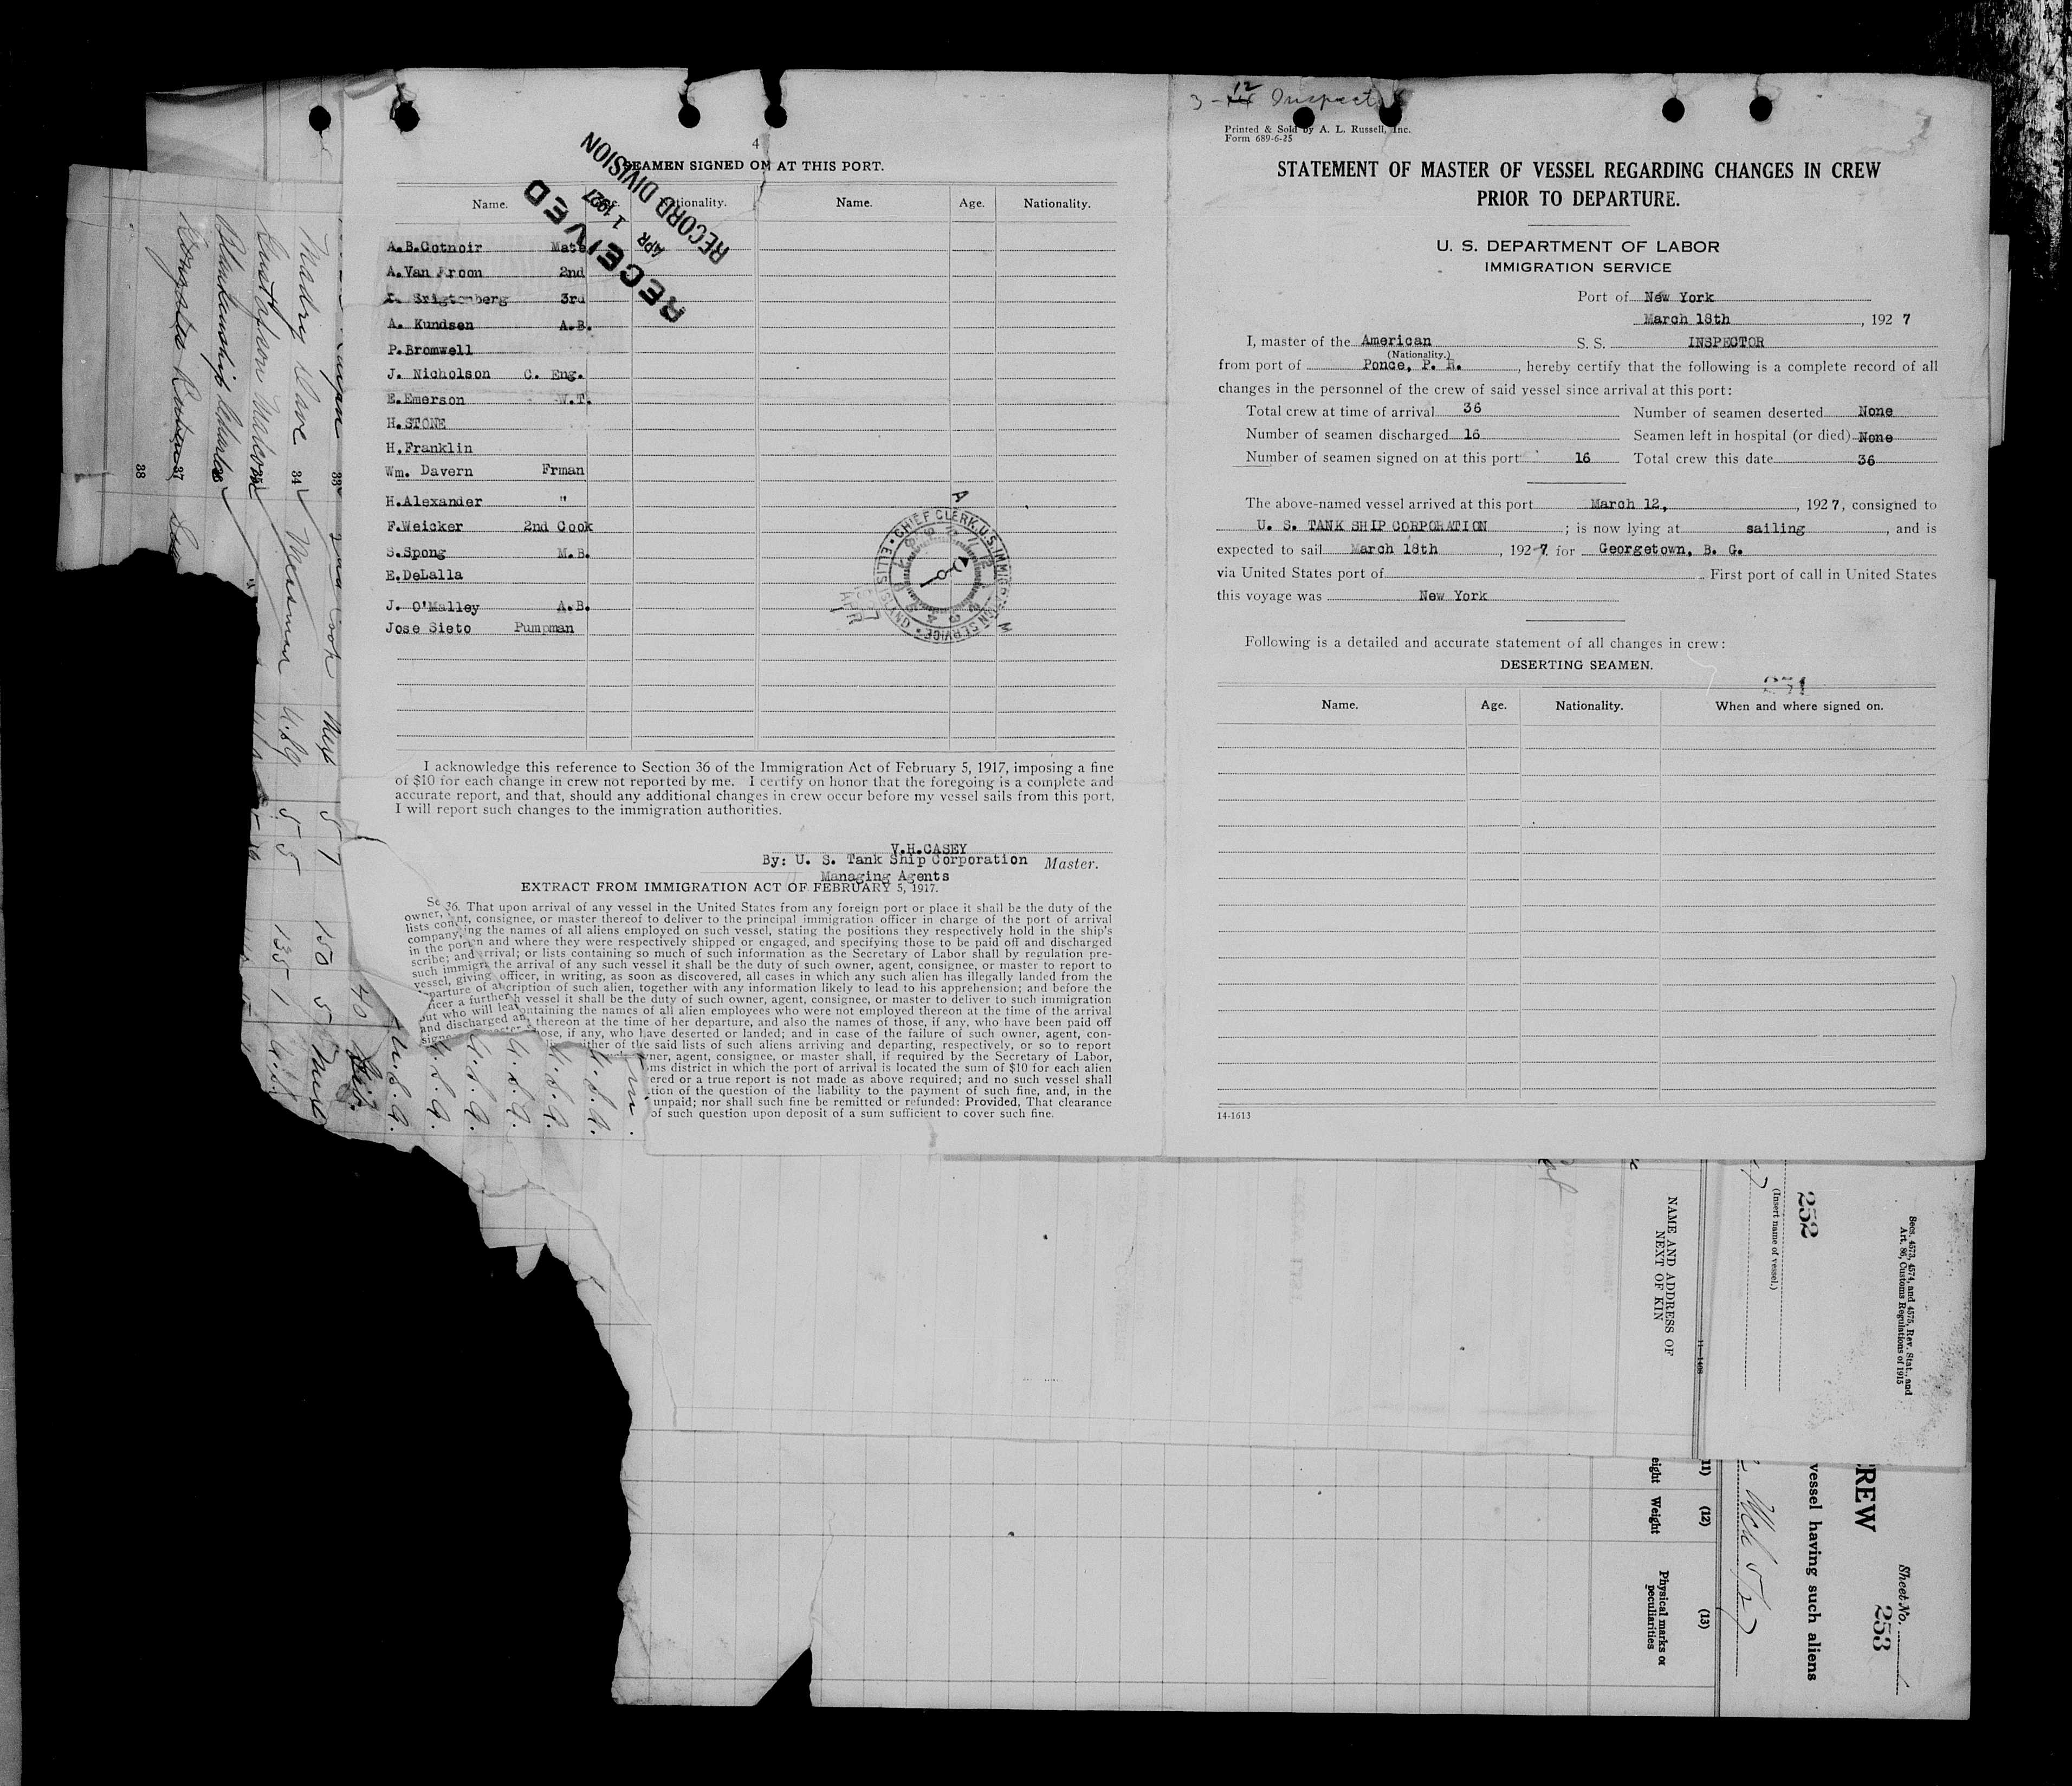 4
SEAMEN SIGNED ON AT THIS PORT.
Name. Nationality. Name. Age. Nationality.
RECEIVED
APR 1 1927
RECORD DIVISION
A.B.Cotnoir Mate
A.Van Kroon 2nd
Srigtenberg 3rd
A. Kundsen A.B.
P.Bromwell
J. Nicholson C. Eng.
E.Emerson W.T.
H.STONE
H.Franklin
Wm. Davern Frman
H.Alexander "
F.Weicker 2nd Cook
S.Spong M.B.
E.DeLalla
J. O'Malley A.B.
Jose Sieto Pumpman
CHIEF CLERK, U.S. IMMIGRATION SERVICE • ELLIS ISLAND
I acknowledge this reference to Section 36 of the Immigration Act of February 5, 1917, imposing a fine
of $10 for each change in crew not reported by me. I certify on honor that the foregoing is a complete and
accurate report, and that, should any additional changes in crew occur before my vessel sails from this port,
I will report such changes to the immigration authorities.
V.H.CASEY
By: U. S. Tank Ship Corporation Master.
Managing Agents
EXTRACT FROM IMMIGRATION ACT OF FEBRUARY 5, 1917.
36. That upon arrival of any vessel in the United States from any foreign port or place it shall be the duty of the
owner, consignee, or master thereof to deliver to the principal immigration officer in charge of the port of arrival
lists the names of all aliens employed on such vessel, stating the positions they respectively hold in the ship's
company, and where they were respectively shipped or engaged, and specifying those to be paid off and discharged
in the port or lists containing so much of such information as the Secretary of Labor shall by regulation pre-
scribe; and the arrival of any such vessel it shall be the duty of such owner, agent, consignee, or master to report to
such officer, in writing, as soon as discovered, all cases in which any such alien has illegally landed from the
vessel, giving of such alien, together with any information likely to lead to his apprehension; and before the
vessel it shall be the duty of such owner, agent, consignee, or master to deliver to such immigration
a further the names of all alien employees who were not employed thereon at the time of the arrival
but who will thereon at the time of her departure, and also the names of those, if any, who have been paid off
and discharged if any, who have deserted or landed; and in case of the failure of such owner, agent, con-
either of the said lists of such aliens arriving and departing, respectively, or so to report
agent, consignee, or master shall, if required by the Secretary of Labor,
district in which the port of arrival is located the sum of $10 for each alien
or a true report is not made as above required; and no such vessel shall
of the question of the liability to the payment of such fine, and, in the
unpaid; nor shall such fine be remitted or refunded: Provided, That clearance
of such question upon deposit of a sum sufficient to cover such fine.
3-12 Inspect
Printed & Sold by A. L. Russell, Inc.
Form 689-6-25
STATEMENT OF MASTER OF VESSEL REGARDING CHANGES IN CREW
PRIOR TO DEPARTURE.
U. S. DEPARTMENT OF LABOR
IMMIGRATION SERVICE
Port of New York
March 18th, 1927
I, master of the American S. S. INSPECTOR
(Nationality.)
from port of Ponce, P. R., hereby certify that the following is a complete record of all
changes in the personnel of the crew of said vessel since arrival at this port:
Total crew at time of arrival 36 Number of seamen deserted None
Number of seamen discharged 16 Seamen left in hospital (or died) None
Number of seamen signed on at this port 16 Total crew this date 36
The above-named vessel arrived at this port March 12, 1927, consigned to
U. S. TANK SHIP CORPORATION; is now lying at sailing, and is
expected to sail March 18th, 1927 for Georgetown, B. G.
via United States port of First port of call in United States
this voyage was New York
Following is a detailed and accurate statement of all changes in crew:
DESERTING SEAMEN.
251
Name. Age. Nationality. When and where signed on.
14-1613
33 2nd Cook
Madry Dave 34 Messman U.S.A. 5 5 135
Gustafson Malcom 35
Blankenship Charles 36
Gonzales Ruben 37
38
U.S.A.
U.S.A.
U.S.A.
U.S.A.
U.S.A.
U.S.A.
NAME AND ADDRESS OF
NEXT OF KIN
(Insert name of vessel.)
252
Secs. 4573, 4574, and 4575, Rev. Stat., and
Art. 86, Customs Regulations of 1915
(11) (12) (13)
Weight
Physical marks or
peculiarities
vessel having such aliens
CREW
Sheet No.
253